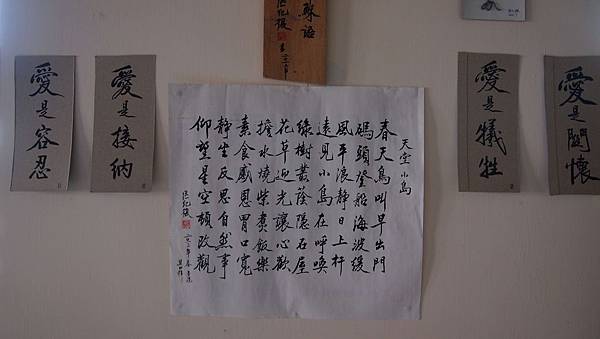 穌語
愛是關懷
愛是犧牲
天堂小島
春天鳥叫早出門
碼頭登船海波緩
風平浪靜日上杆
遠見小島在呼喚
綠樹叢蔭隱石屋
花草迎光讓心歡
擔水燒柴煮飯樂
素食感恩胃口寬
靜生反思自然事
仰望星空頓改觀
区紀復
愛是接納
愛是容忍